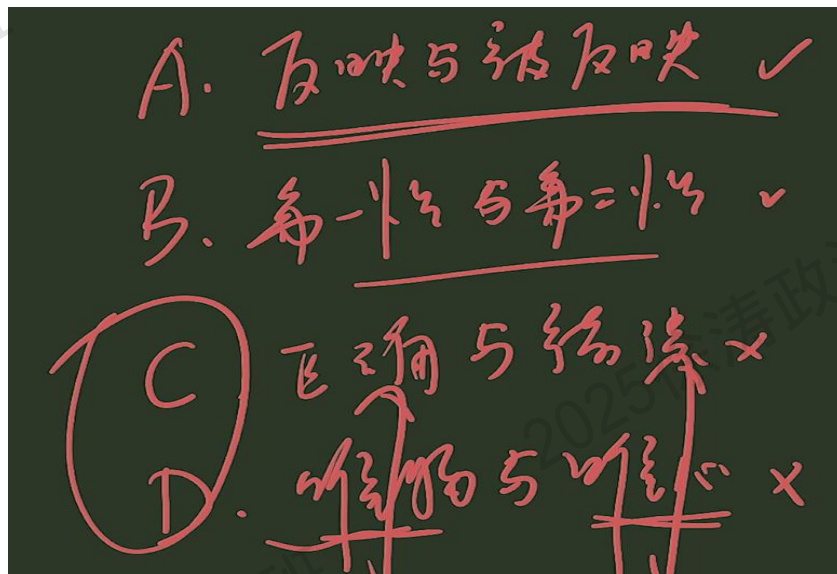 A. 反映与被反映 ✓
B. 第一性与第二性 ✓
C 正确与错误 ×
D. 唯物与唯心 ×
2025徐涛政